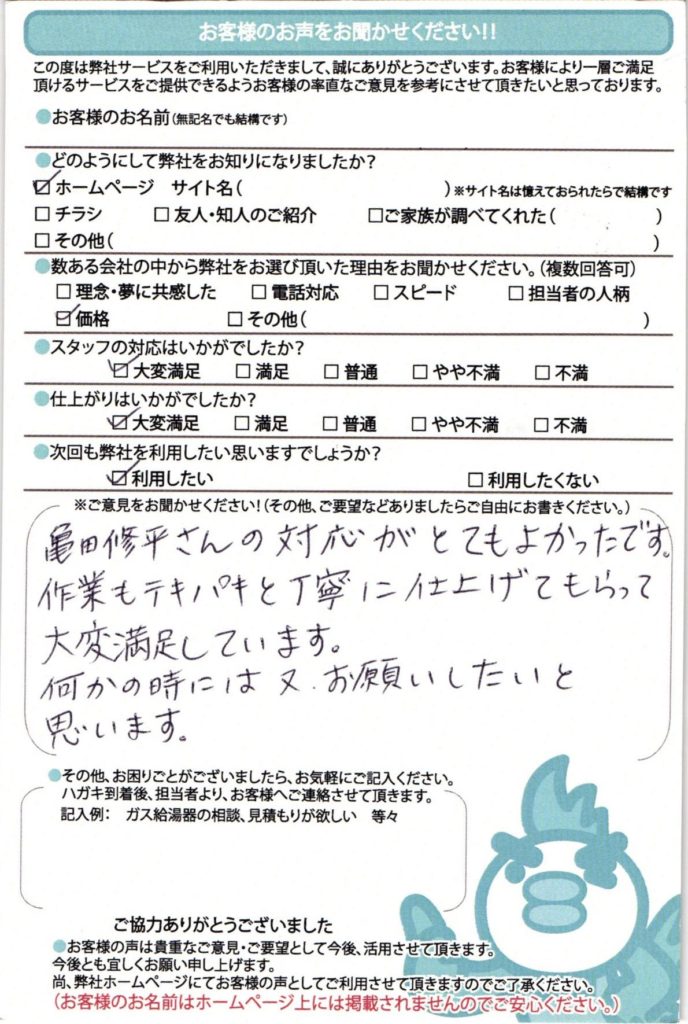 お客様のお声をお聞かせください!!
この度は弊社サービスをご利用いただきまして、誠にありがとうございます。お客様により一層ご満足
頂けるサービスをご提供できるようお客様の率直なご意見を参考にさせて頂きたいと思っております。
●お客様のお名前(無記名でも結構です)
●どのようにして弊社をお知りになりましたか?
☑ホームページ サイト名( )※サイト名は憶えておられたらで結構です
□チラシ □友人・知人のご紹介 □ご家族が調べてくれた( )
□その他( )
●数ある会社の中から弊社をお選び頂いた理由をお聞かせください。(複数回答可)
□理念・夢に共感した □電話対応 □スピード □担当者の人柄
☑価格 □その他( )
●スタッフの対応はいかがでしたか?
☑大変満足 □満足 □普通 □やや不満 □不満
●仕上がりはいかがでしたか?
☑大変満足 □満足 □普通 □やや不満 □不満
●次回も弊社を利用したい思いますでしょうか?
☑利用したい □利用したくない
※ご意見をお聞かせください!(その他、ご要望などありましたらご自由にお書きください。)
亀田修平さんの対応がとてもよかったです。
作業もテキパキと丁寧に仕上げてもらって
大変満足しています。
何かの時には又、お願いしたいと
思います。
●その他、お困りごとがございましたら、お気軽にご記入ください。
ハガキ到着後、担当者より、お客様へご連絡させて頂きます。
記入例: ガス給湯器の相談、見積もりが欲しい 等々
ご協力ありがとうございました
●お客様の声は貴重なご意見・ご要望として今後、活用させて頂きます。
今後とも宜しくお願い申し上げます。
尚、弊社ホームページにてお客様の声としてご利用させて頂きますのでご了承ください。
(お客様のお名前はホームページ上には掲載されませんのでご安心ください。)